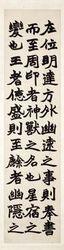 在位明達方外幽遠之事則奉書
而至周印者神獸之名也星宿之
變化王者德盛則至駼者幽隱之